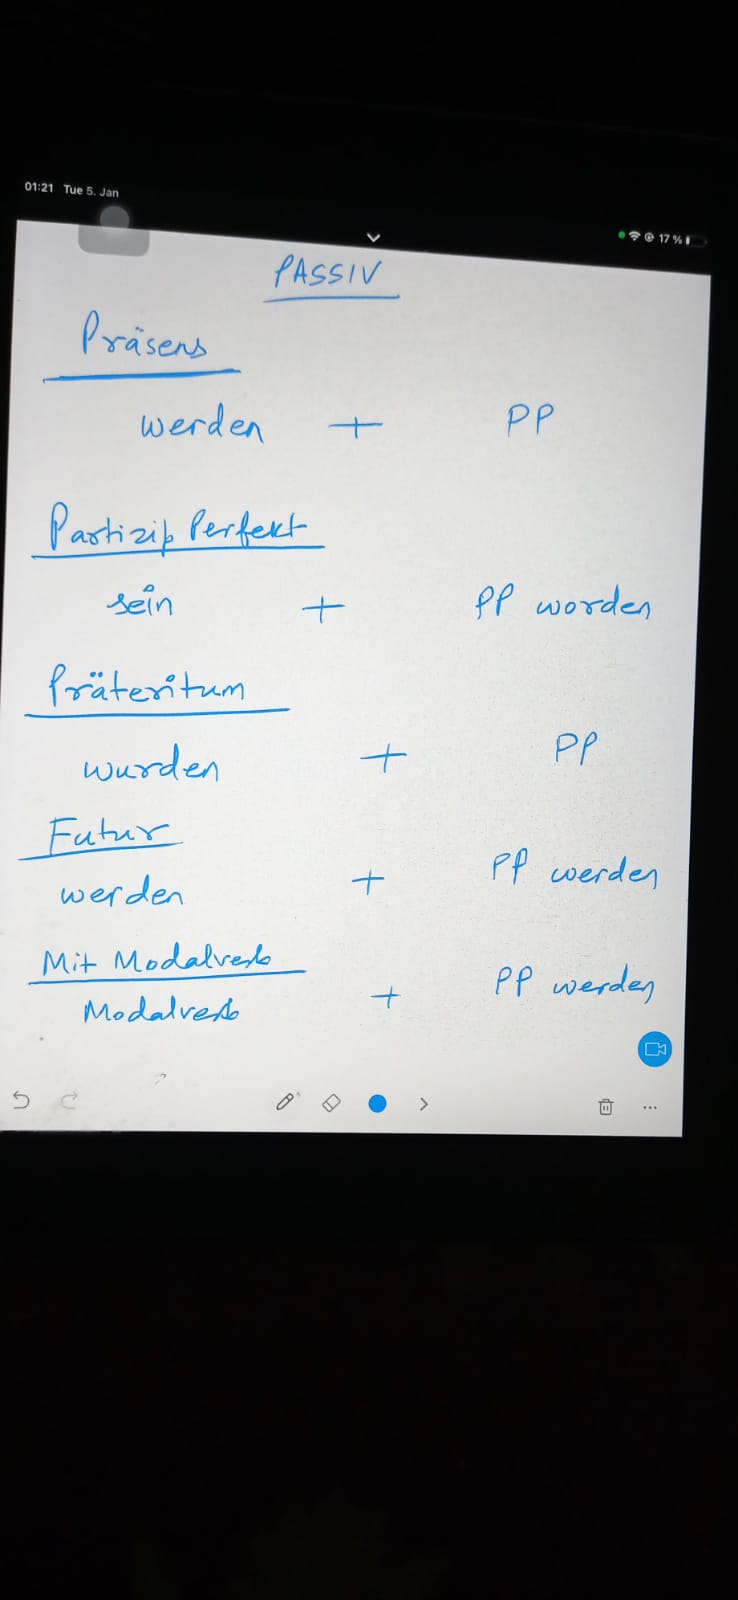 01:21 Tue 5. Jan
17 %
PASSIV
Präsens
werden + PP
Partizip Perfekt
sein + PP worden
Präteritum
wurden + PP
Futur
werden + PP werden
Mit Modalverb
Modalverb + PP werden